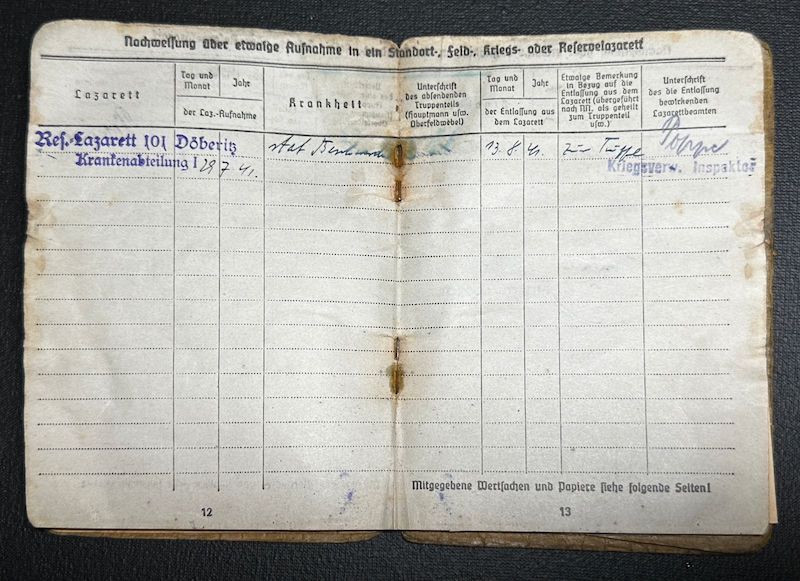 Nachweisung über etwaige Aufnahme in ein Standort-, Feld-, Kriegs- oder Reservelazarett
Lazarett
Tag und Monat
Jahr
der Laz.-Aufnahme
Krankheit
Unterschrift
des absendenden
Truppenteils
(Hauptmann usw.
Oberfeldwebel)
Tag und
Monat
Jahr
der Entlassung aus
dem Lazarett
Etwaige Bemerkung
in Bezug auf die
Entlassung aus dem
Lazarett (übergeführt
nach NN, als geheilt
zum Truppenteil
usw.)
Unterschrift
des die Entlassung
bewirkenden
Lazarettbeamten
Res.-Lazarett 101 Döberitz
Krankenabteilung I
29 7 41.
13. 8 41. zur Truppe
Poppe
Kriegsverw. Inspektor
Mitgegebene Wertsachen und Papiere siehe folgende Seiten!
12
13